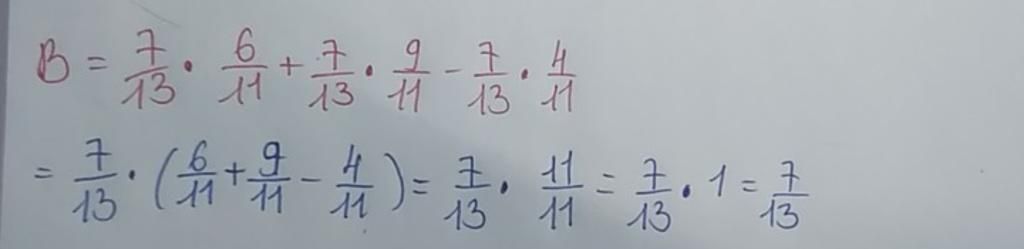 B = 7/13 · 6/11 + 7/13 · 9/11 - 7/13 · 4/11
= 7/13 · (6/11 + 9/11 - 4/11) = 7/13 · 11/11 = 7/13 · 1 = 7/13